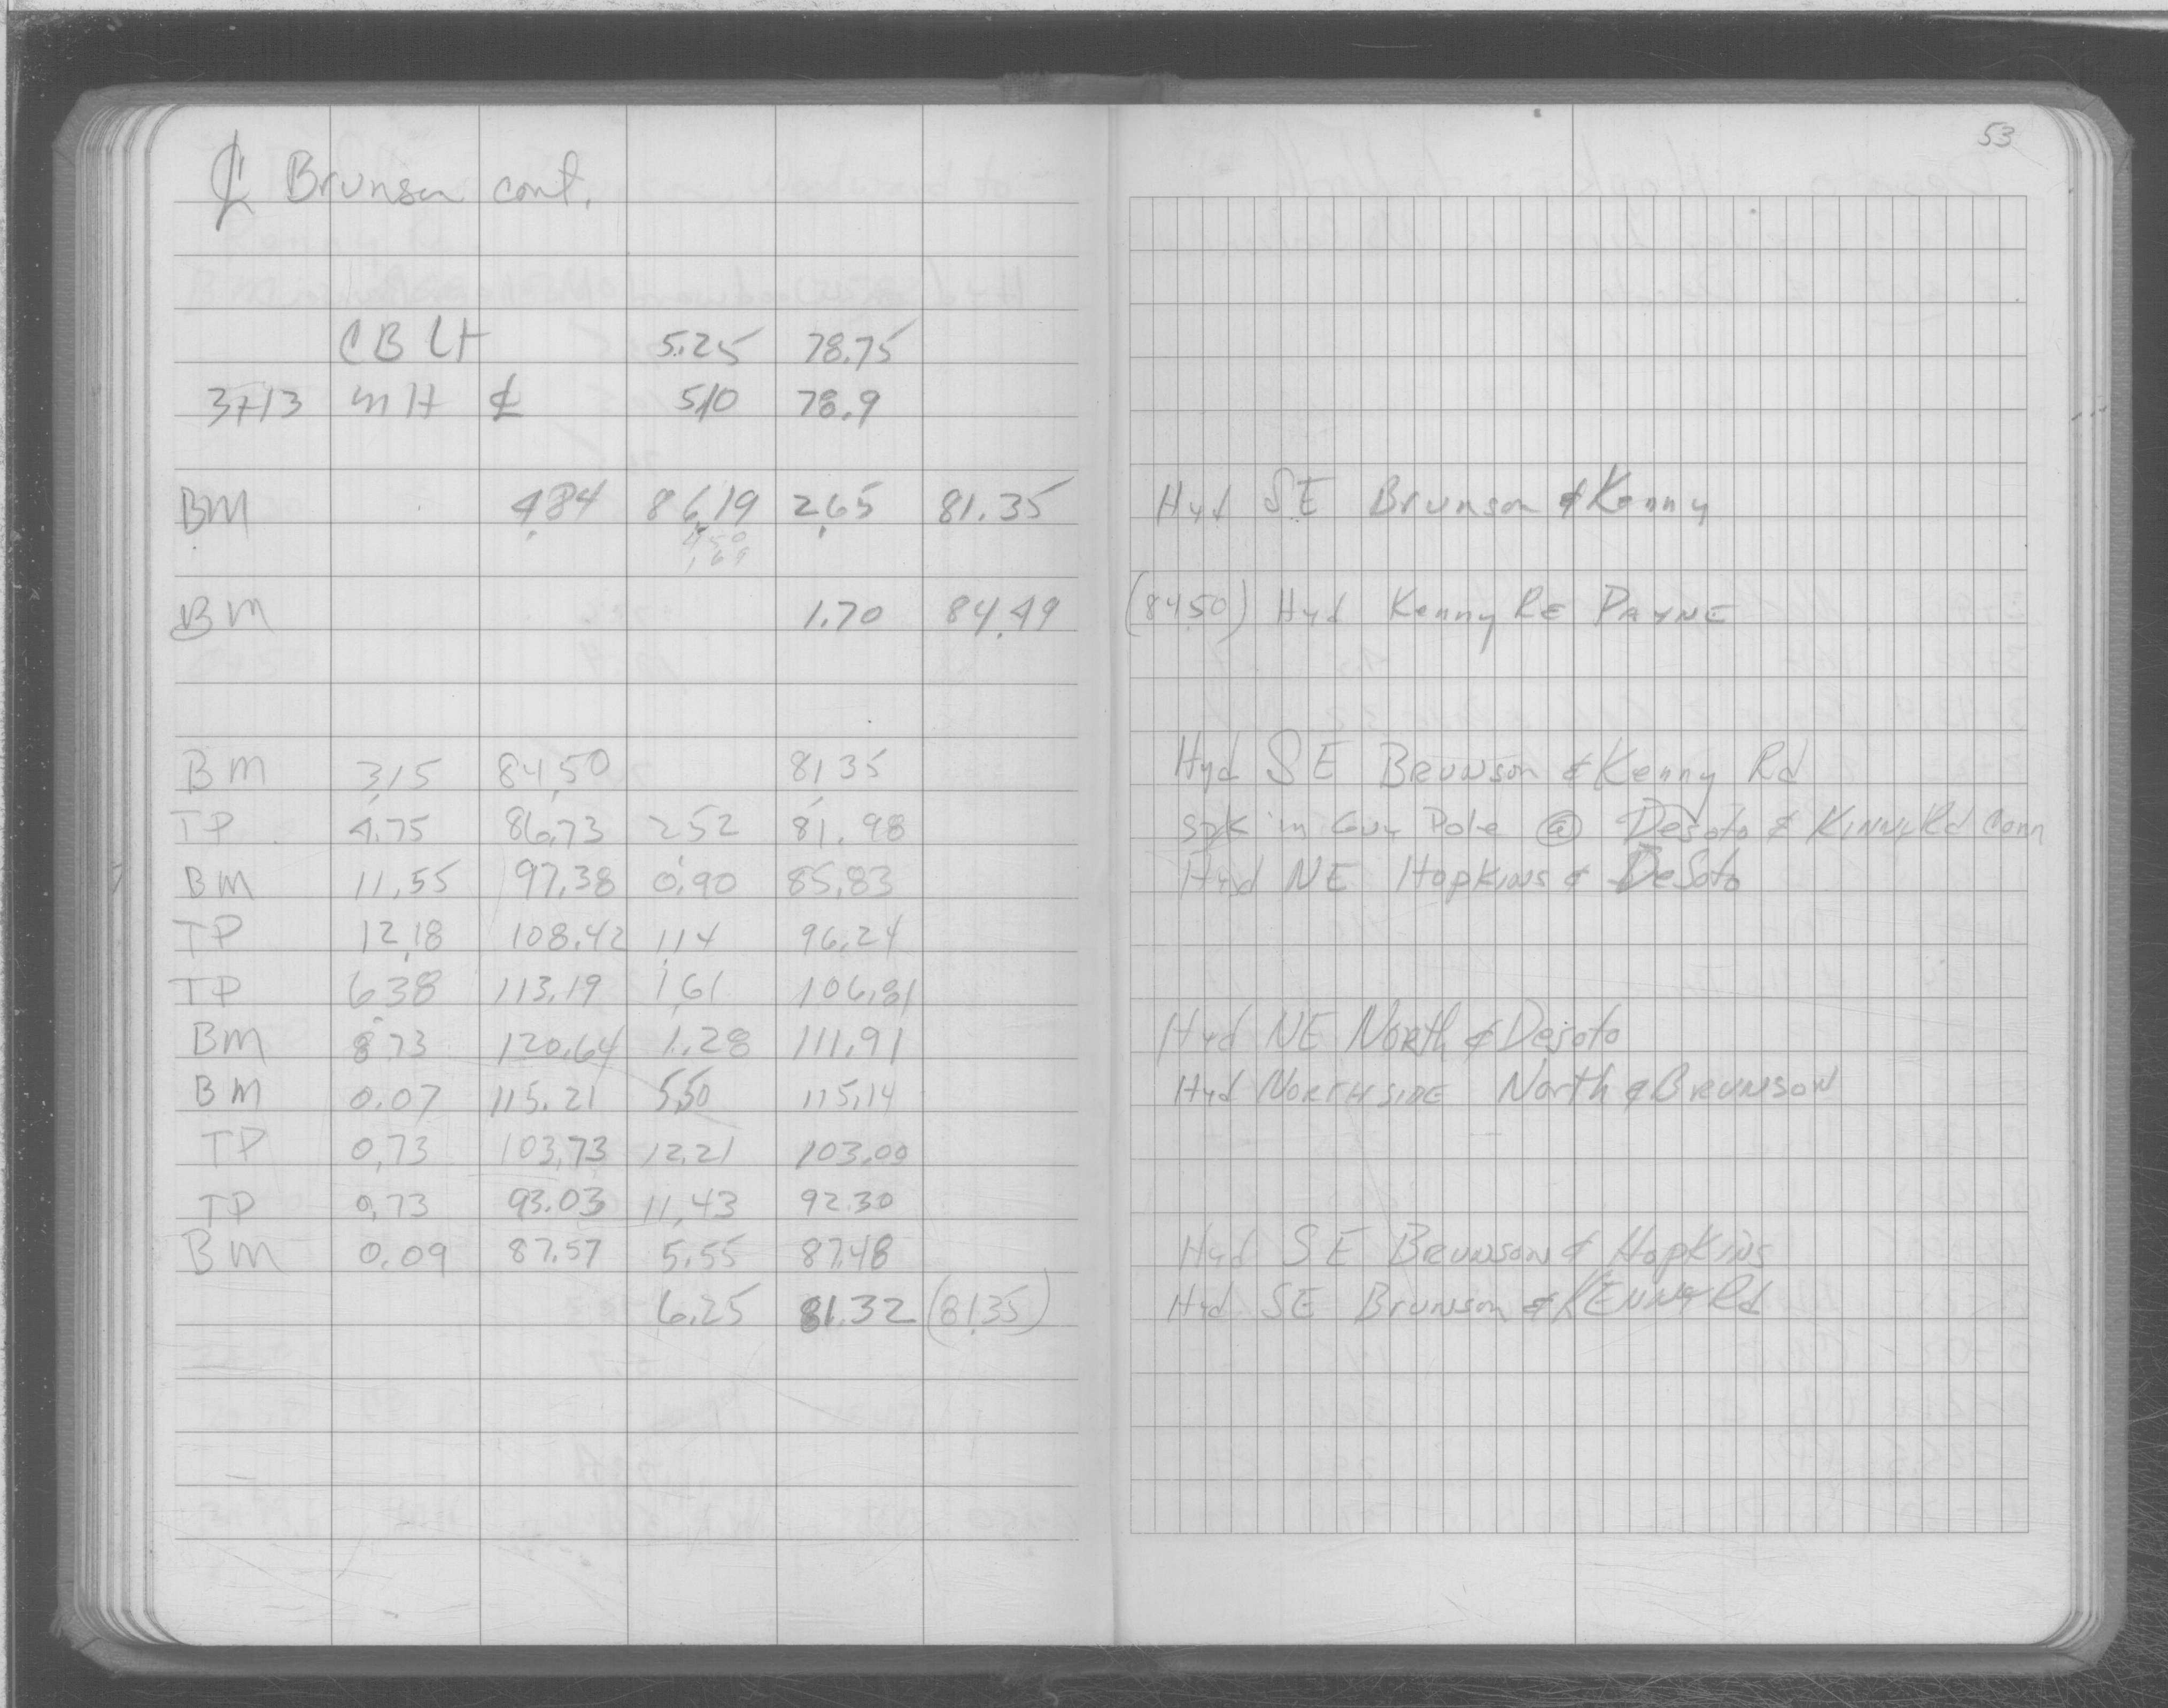 53
℄ Brunson cont.
CB Lt 5.25 78.75
3+13 MH ℄ 5.10 78.9
BM 4.84 86.19 2.65 81.35 Hyd SE Brunson & Kenny
4.50
1.69
BM 1.70 84.49 (84.50) Hyd Kenny Re PAYNE
BM 3.15 84.50 81.35 Hyd SE Brunson & Kenny Rd
TP 4.75 86.73 2.52 81.98 spk in Guy Pole @ Desoto & KINNY Rd Conn
BM 11.55 97.38 0.90 85.83 Hyd NE Hopkins & DeSoto
TP 12.18 108.42 1.14 96.24
TP 6.38 113.19 1.61 106.81
BM 8.73 120.64 1.28 111.91 Hyd NE North & Desoto
BM 0.07 115.21 5.50 115.14 Hyd NORTH SIDE North & BRUNSON
TP 0.73 103.73 12.21 103.00
TP 0.73 93.03 11.43 92.30
BM 0.09 87.57 5.55 87.48 Hyd SE Brunson & Hopkins
6.25 81.32 (81.35) Hyd SE Brunson & KENNY Rd